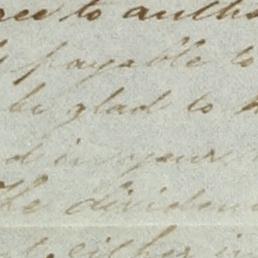 ree to autho
payable to
be glad to
d in your
The dividen
either in